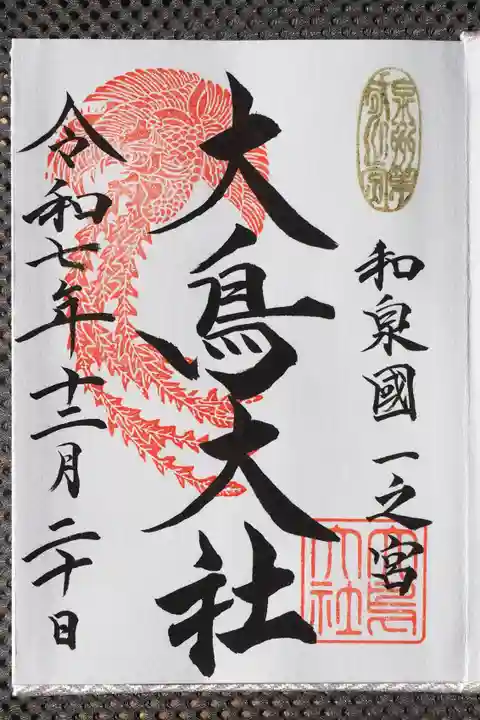 和泉國一之宮
大鳥大社
令和七年十二月二十日
大鳥大社